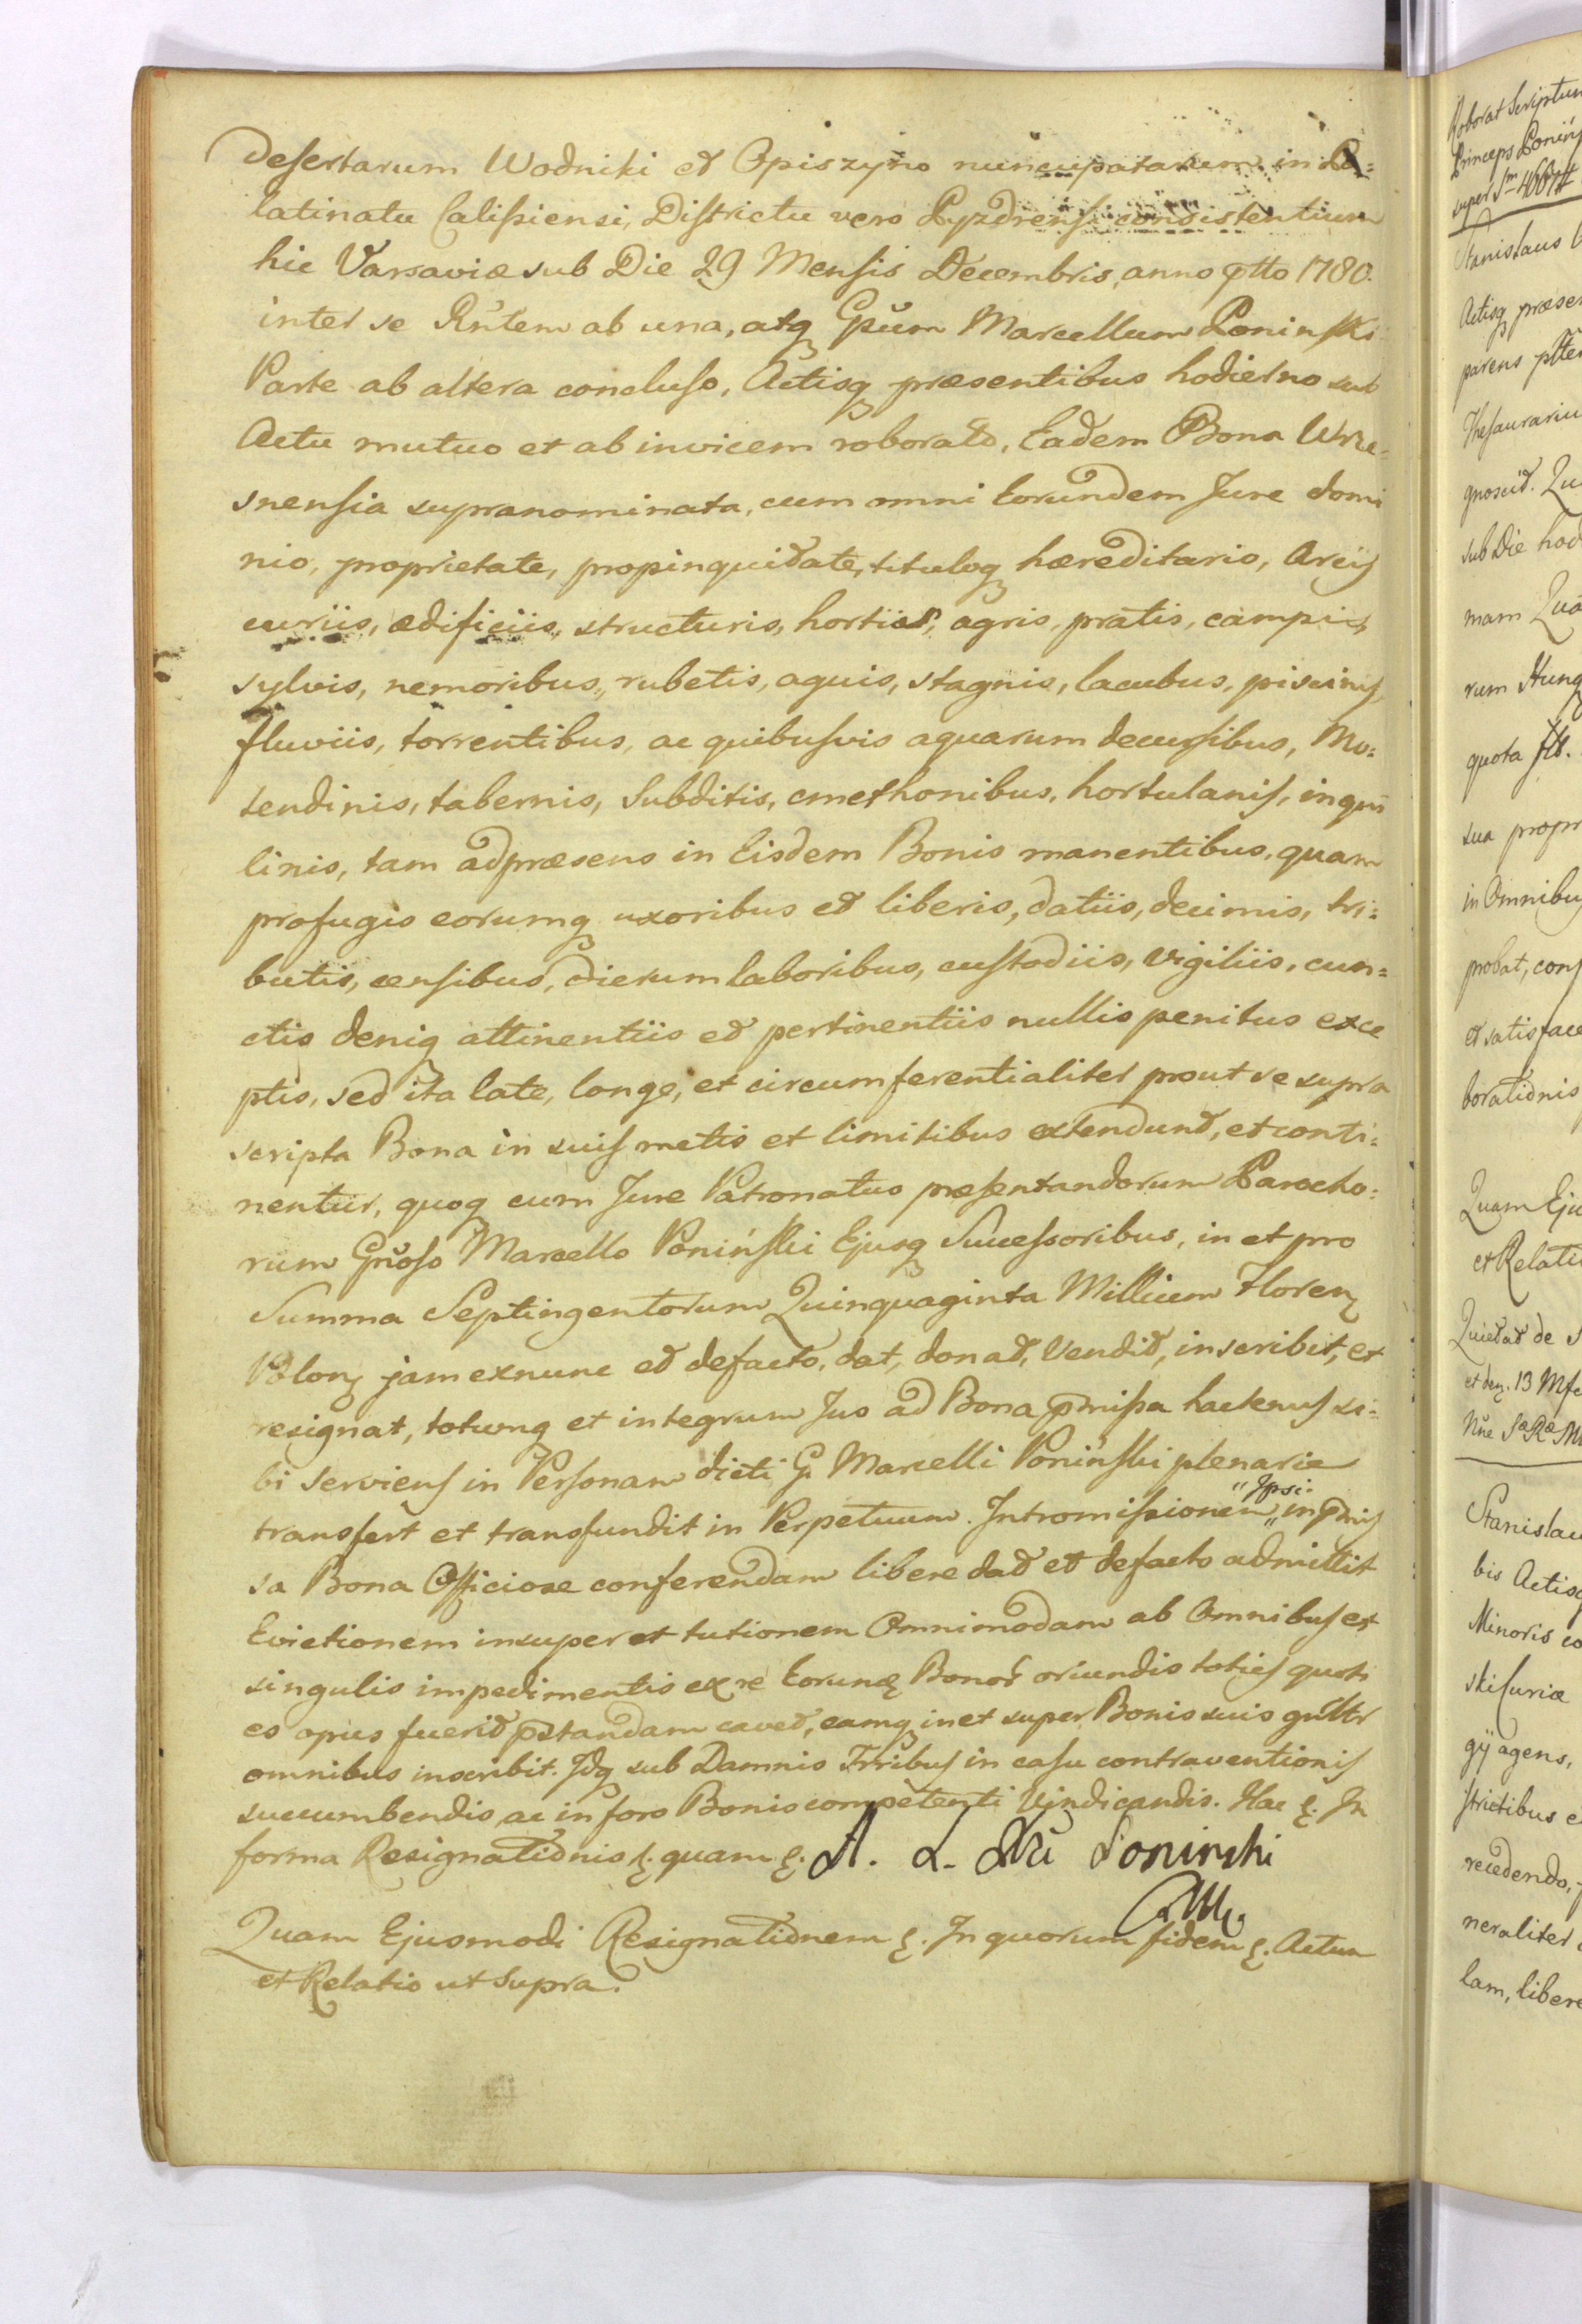 Desertarum Wodniki et Opiszyno nuncupatarum in Pa=
latinatu Calisiensi, Districtu vero Pyzdrensi consistentium
hic Varsaviæ sub Die 29 Mensis Decembris, anno pttо 1780.
inter se Rñtem ab una, atq Gñum Marcellum Poninski
Parte ab altera concluso, Actisq præsentibus hodierno sub
Actu mutuo et ab invicem roborato, Eadem Bona Wrze=
snensia supranominata, cum omni Eorundem Jure domi
nio, proprietate, propinquitate, tituloq hæreditario, Areis
curiis, ædificiis, structuris, hortis, agris, pratis, campis,
sylvis, nemoribus, rubetis, aquis, stagnis, lacubus, piscinis,
fluviis, torrentibus, ac quibusvis aquarum decursibus, Mo=
lendinis, tabernis, Subditis, cmethonibus, hortulanis, inqui
linis, tam ad præsens in Eisdem Bonis manentibus, quam
profugis eorumq uxoribus et liberis, datiis, decimis, tri=
butis, censibus, dierum laboribus, custodiis, vigiliis, cun=
ctis deniq attinentiis et pertinentiis nullis penitus exce
ptis, sed ita late, longe, et circumferentialiter prout se supra
scripta Bona in suis metis et limitibus extendunt, et conti=
nentur, quoq cum Jure Patronatus præsentandorum Parocho=
rum Gñoso Marcello Poniński Ejusq Successoribus, in et pro
Summa Septingentorum Quinquaginta Millium Floren
Polon jam exnunc et defacto, dat, donat, Vendit, inscribit, et
resignat, totumq et integrum Jus ad Bona pmissa hactenus si=
bi serviens in Personam dicti G. Marcelli Poniński plenarie
transfert et transfundit in Perpetuum. Intromissionem "Ipsi" in pmis
sa Bona Officiose conferendam libere dat et defacto admittit
Evictionem insuper et tutionem Omnimodam ab Omnibus et
singulis impedimentis ex re Eorund Bonor oriundis toties quoti
es opus fuerit pstandam cavet, eamq in et super Bonis suis gnltr
omnibus inscribit. Idq sub Damnis Trribus in casu contraventionis
succumbendis, ac in foro Bonis competenti Vindicandis. Hac &. In
forma Resignationis &. quam &. A. L. Poninski
Quam Ejusmodi Resignationem &. In quorum fidem &. Actum
et Relatio ut Supra.
Roborat Scriptum
Princeps Ponins
super Sm 4667#
Stanislaus
Actisq præsen
parens
Thesaurariu
gnoscit. Qu
sub Die hod
mam Qua
rum Hung
quota
sua propr
in Omnibus
probat, conf
et satisface
borationis
Quam Eju
et Relatio
Quietat de
et den. 13 Mse
Stanislau
bis Actisq
Minoris co
ski Curiæ
gÿ agens,
strictibus e
recedendo,
neraliter
lam, libere